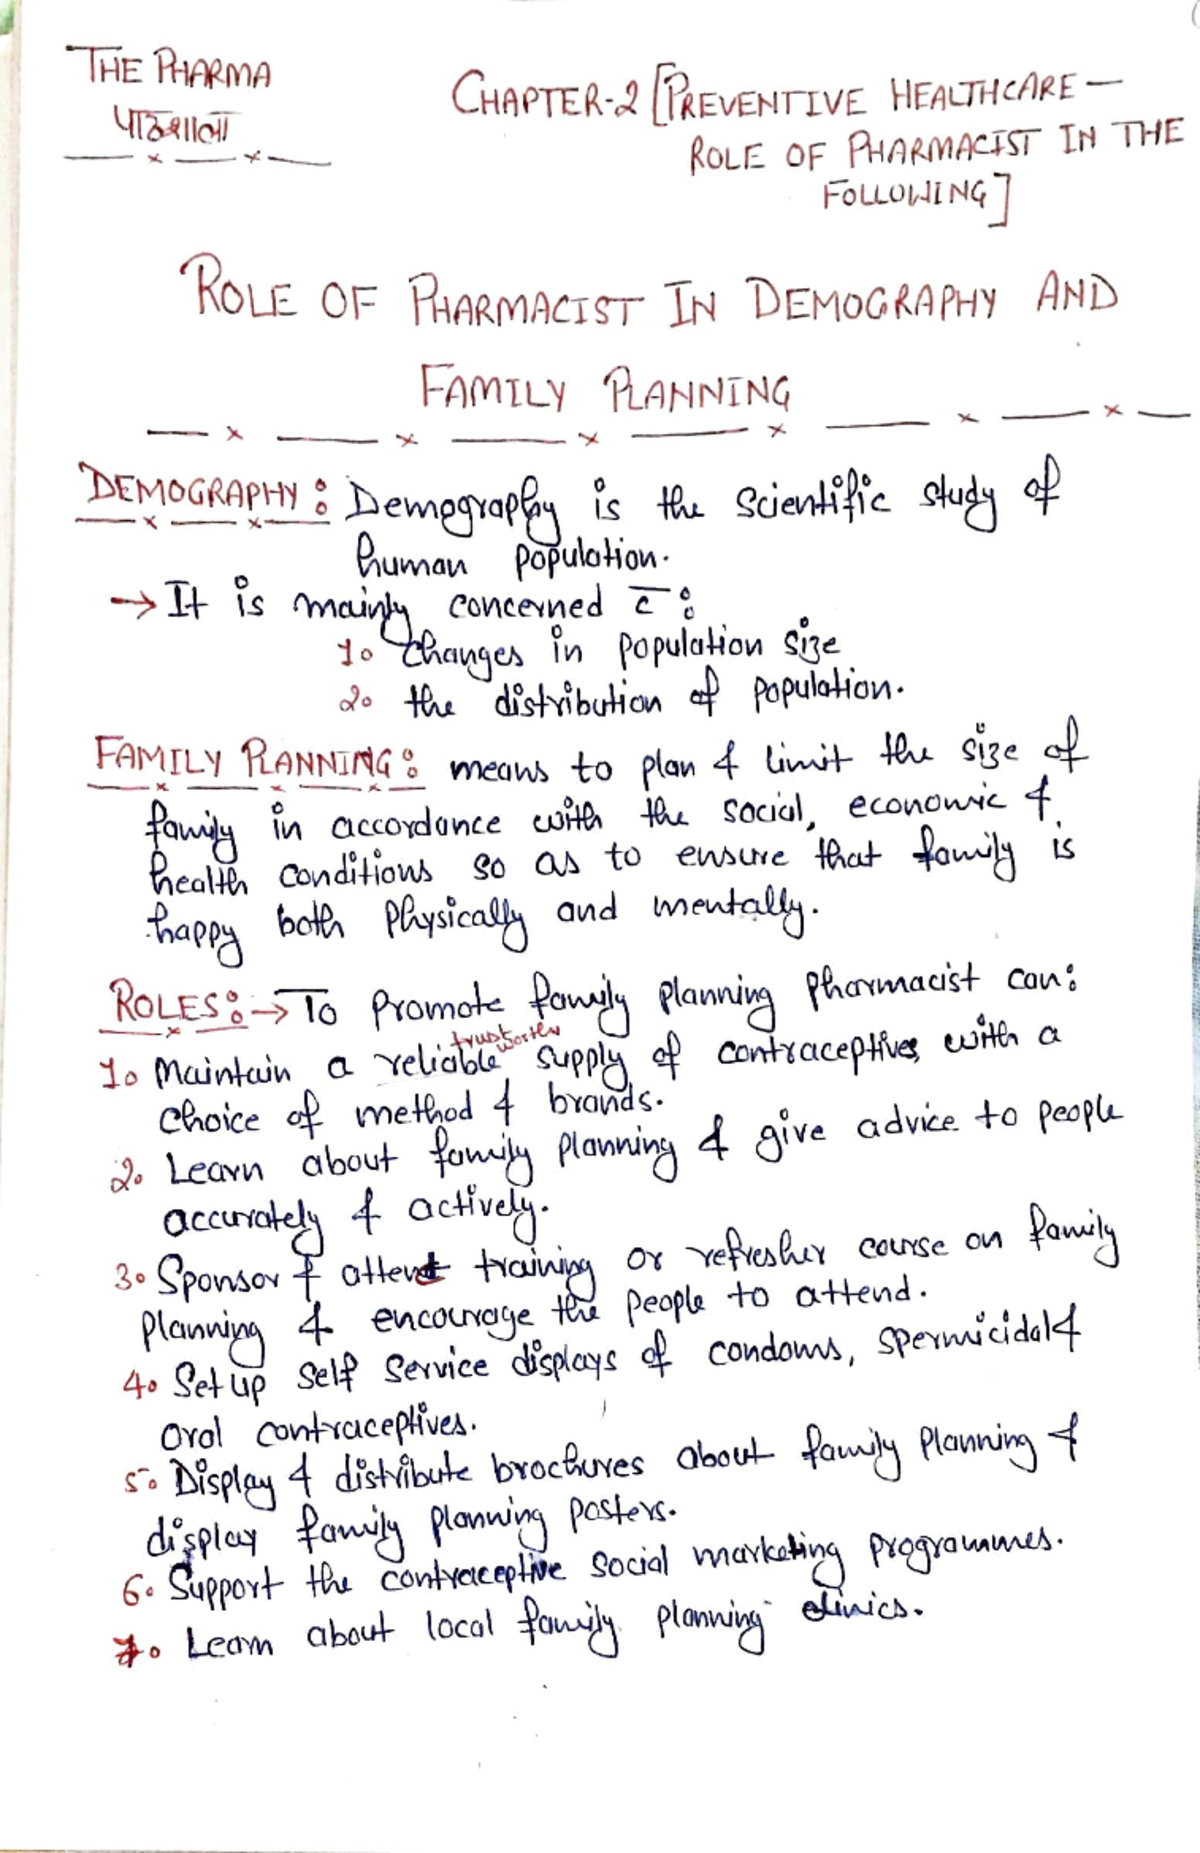 THE PHARMA
पाठशाला
CHAPTER-2 [PREVENTIVE HEALTHCARE—
ROLE OF PHARMACIST IN THE
FOLLOWING]
ROLE OF PHARMACIST IN DEMOGRAPHY AND
FAMILY PLANNING
DEMOGRAPHY: Demography is the scientific study of
human population.
→ It is mainly concerned c̅ :
1. Changes in population size
2. the distribution of population.
FAMILY PLANNING: means to plan & limit the size of
family in accordance with the social, economic &
health conditions so as to ensure that family is
happy both physically and mentally.
ROLES:→ To promote family planning pharmacist can:
trustworthy
1. Maintain a reliable supply of contraceptives, with a
choice of method & brands.
2. Learn about family planning & give advice to people
accurately & actively.
3. Sponsor & attend training or refresher course on family
planning & encourage the people to attend.
4. Set up self service displays of condoms, spermicidal &
oral contraceptives.
5. Display & distribute brochures about family planning &
display family planning posters.
6. Support the contraceptive social marketing programmes.
7. Learn about local family planning clinics.